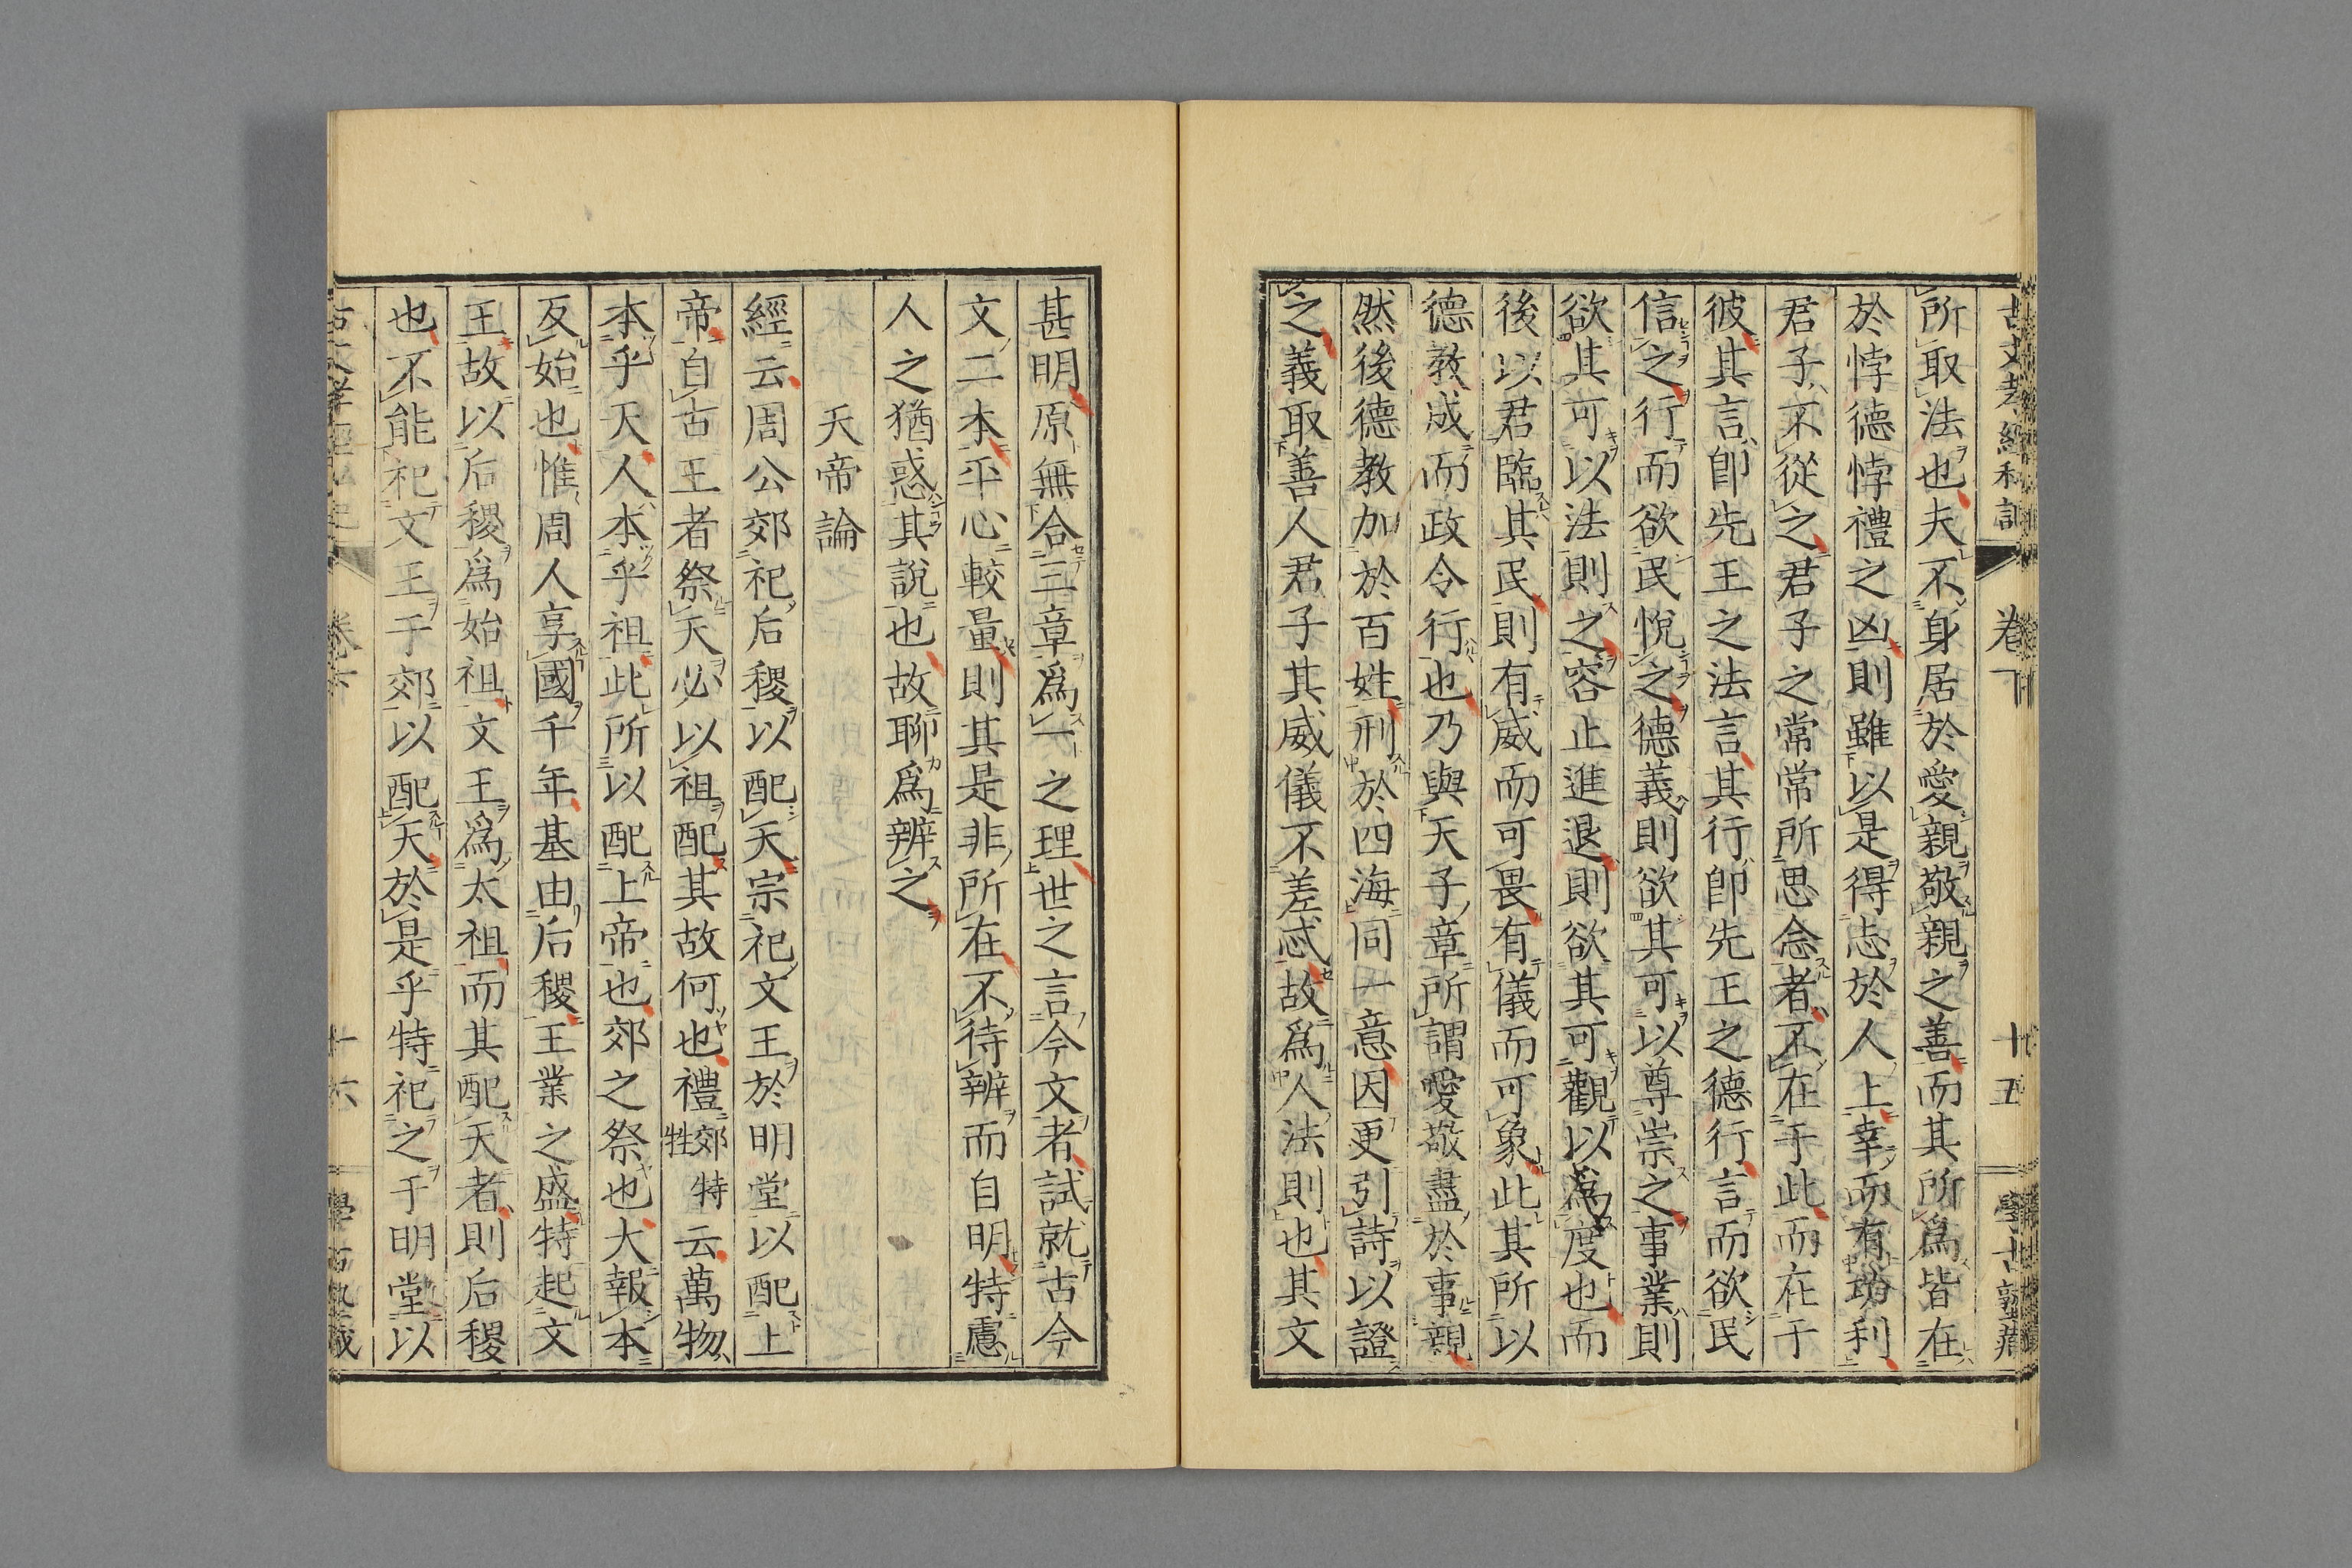 古文孝經私記 卷下 十五 學古塾藏
所取法也夫不身居於愛親敬親之善而其所爲皆在
於悖德悖禮之凶則雖以是得志於人上幸而有功利
君子不從之君子之常常所思念者不在于此而在于
彼其言卽先王之法言其行卽先王之德行言而欲民
信之行而欲民悅之德義則欲其可以尊崇之事業則
欲其可以法則之容止進退則欲其可觀以爲度也而
後以君臨其民則有威而可畏有儀而可象此其所以
德教成而政令行也乃與天子章所謂愛敬盡於事親
然後德教加於百姓刑於四海同一意因更引詩以證
之義取善人君子其威儀不差忒故爲人法則也其文
甚明原無合三章爲一之理世之言今文者試就古今
文二本平心較量則其是非所在不待辨而自明特慮
人之猶惑其說也故聊爲辨之
天帝論
經云周公郊祀后稷以配天宗祀文王於明堂以配上
帝自古王者祭天必以祖配其故何也禮郊特牲云萬物
本乎天人本乎祖此所以配上帝也郊之祭也大報本
反始也惟周人享國千年基由后稷王業之盛特起文
王故以后稷爲始祖文王爲太祖而其配天者則后稷
也不能祀文王于郊以配天於是乎特祀之于明堂以
十六